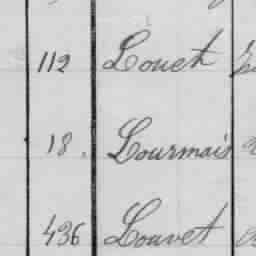 112 Louet
18. Lourmais
436 Louvet